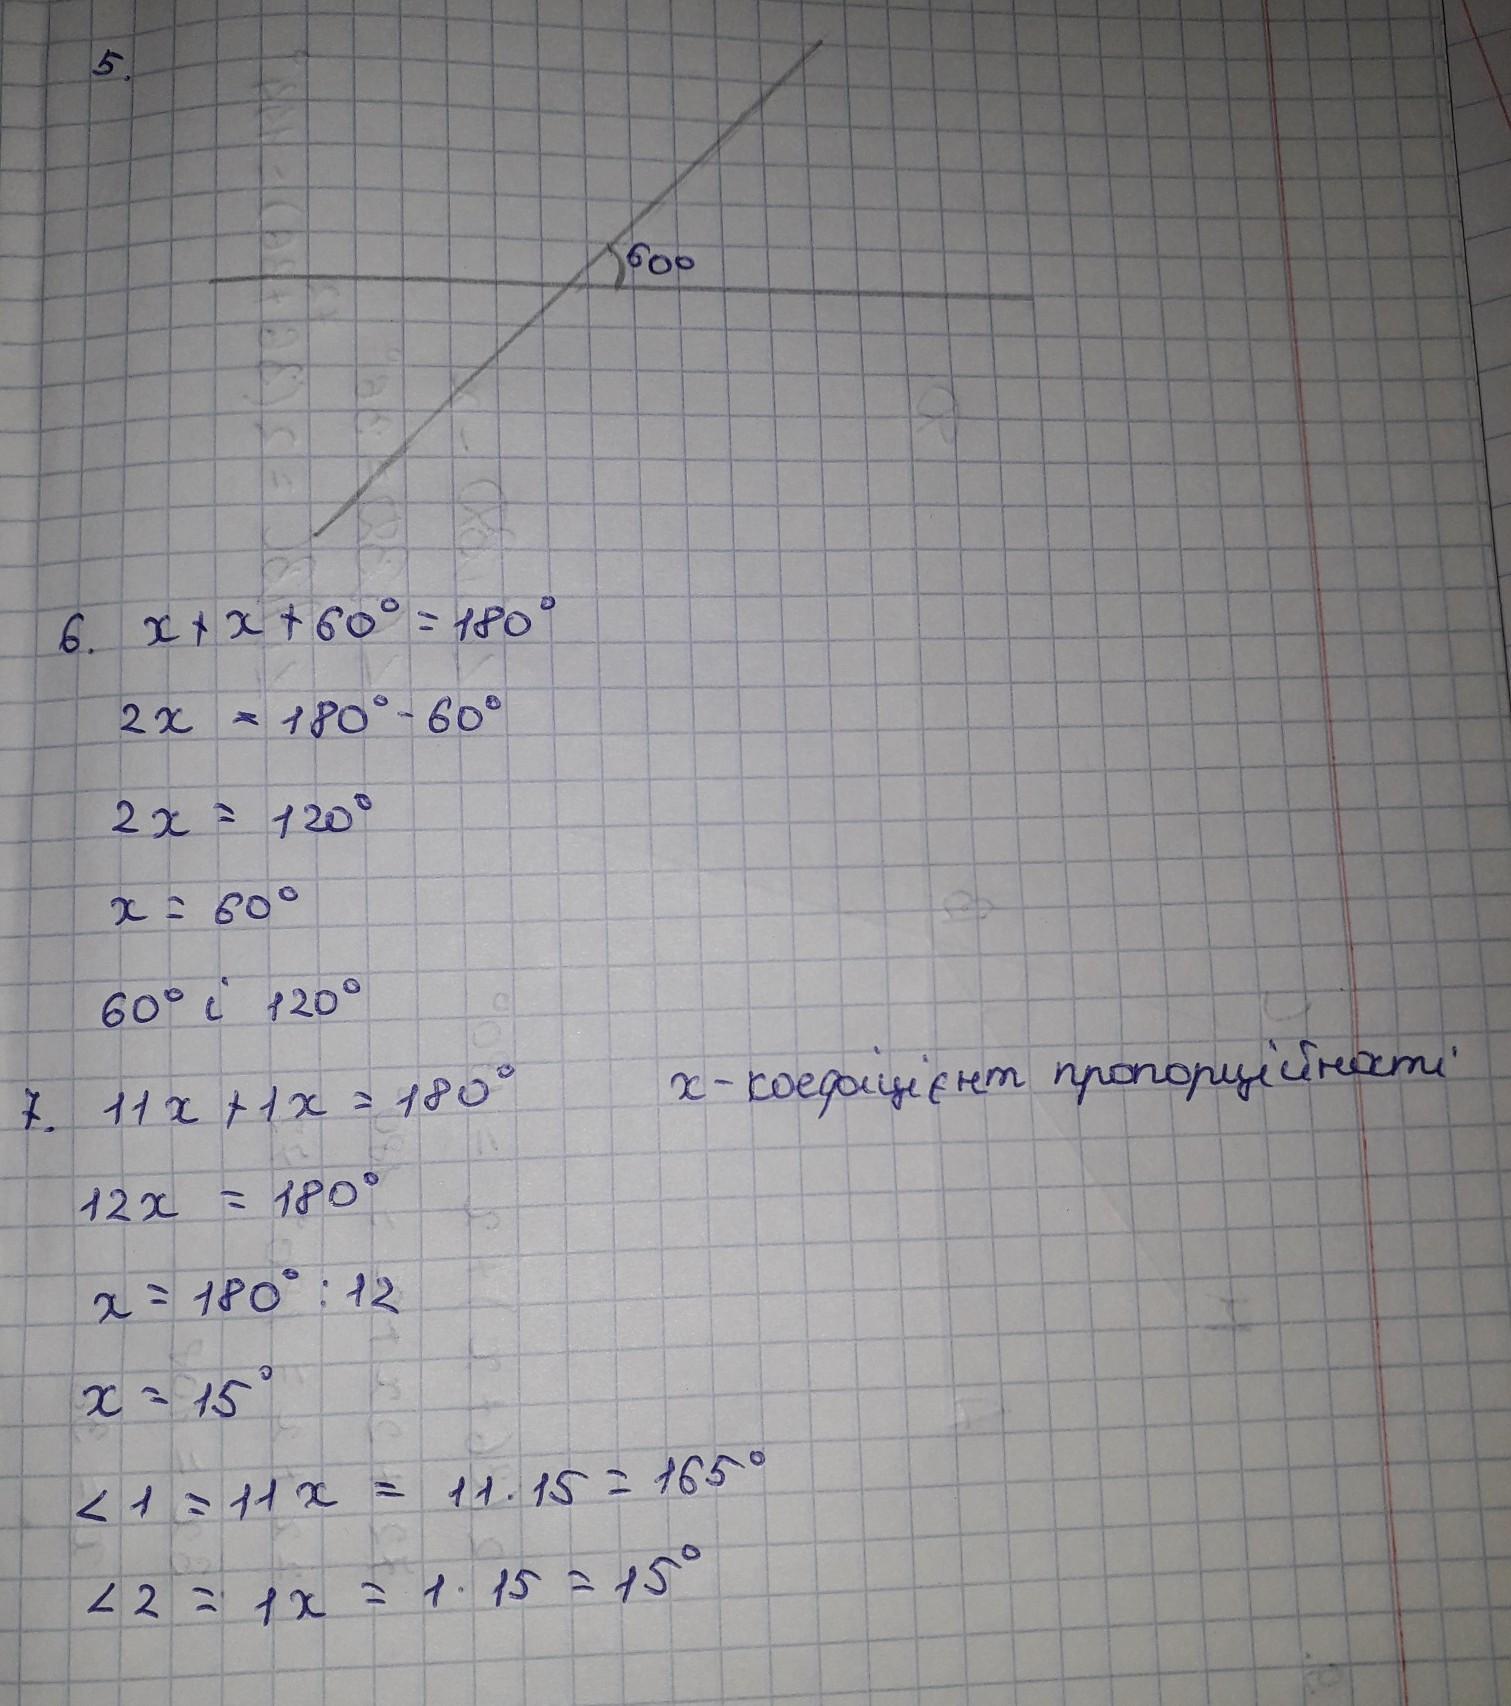 5.
60°
6. x + x + 60° = 180°
2x = 180° - 60°
2x = 120°
x = 60°
60° і 120°
7. 11x + 1x = 180° x - коефіцієнт пропорційності
12x = 180°
x = 180° : 12
x = 15°
<1 = 11x = 11 . 15 = 165°
<2 = 1x = 1 . 15 = 15°